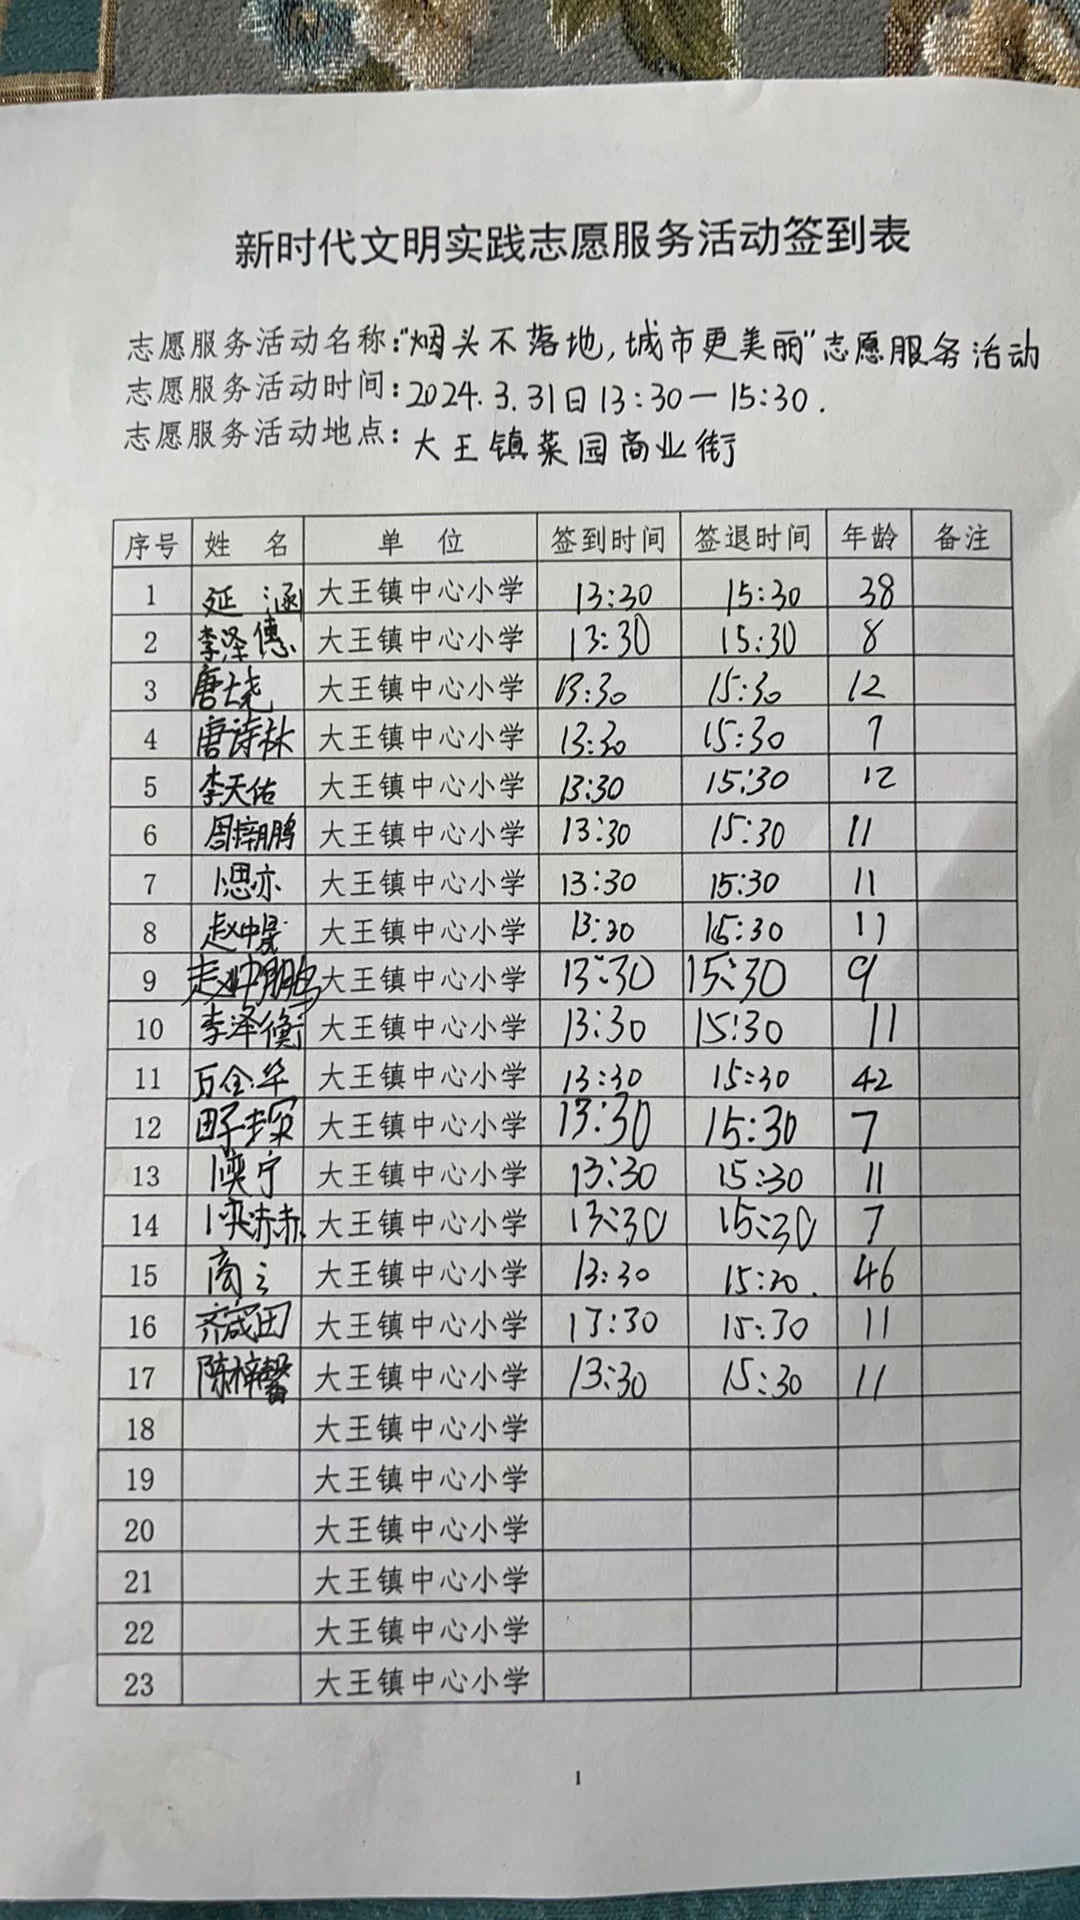 新时代文明实践志愿服务活动签到表
志愿服务活动名称:“烟头不落地,城市更美丽”志愿服务活动
志愿服务活动时间:2024.3.31日13:30—15:30.
志愿服务活动地点:大王镇菜园商业街
序号 姓 名 单 位 签到时间 签退时间 年龄 备注
1 延涵 大王镇中心小学 13:30 15:30 38
2 李泽德 大王镇中心小学 13:30 15:30 8
3 唐 大王镇中心小学 13:30 15:30 12
4 唐诗秋 大王镇中心小学 13:30 15:30 7
5 李天佑 大王镇中心小学 13:30 15:30 12
6 周梓鹏 大王镇中心小学 13:30 15:30 11
7 大王镇中心小学 13:30 15:30 11
8 赵中昊 大王镇中心小学 13:30 15:30 11
9 赵中鹏 大王镇中心小学 13:30 15:30 9
10 李泽衡 大王镇中心小学 13:30 15:30 11
11 万金华 大王镇中心小学 13:30 15:30 42
12 田子 大王镇中心小学 13:30 15:30 7
13 大王镇中心小学 13:30 15:30 11
14 大王镇中心小学 13:30 15:30 7
15 商 大王镇中心小学 13:30 15:30. 46
16 齐宬田 大王镇中心小学 13:30 15:30 11
17 陈梓馨 大王镇中心小学 13:30 15:30 11
18 大王镇中心小学
19 大王镇中心小学
20 大王镇中心小学
21 大王镇中心小学
22 大王镇中心小学
23 大王镇中心小学
1